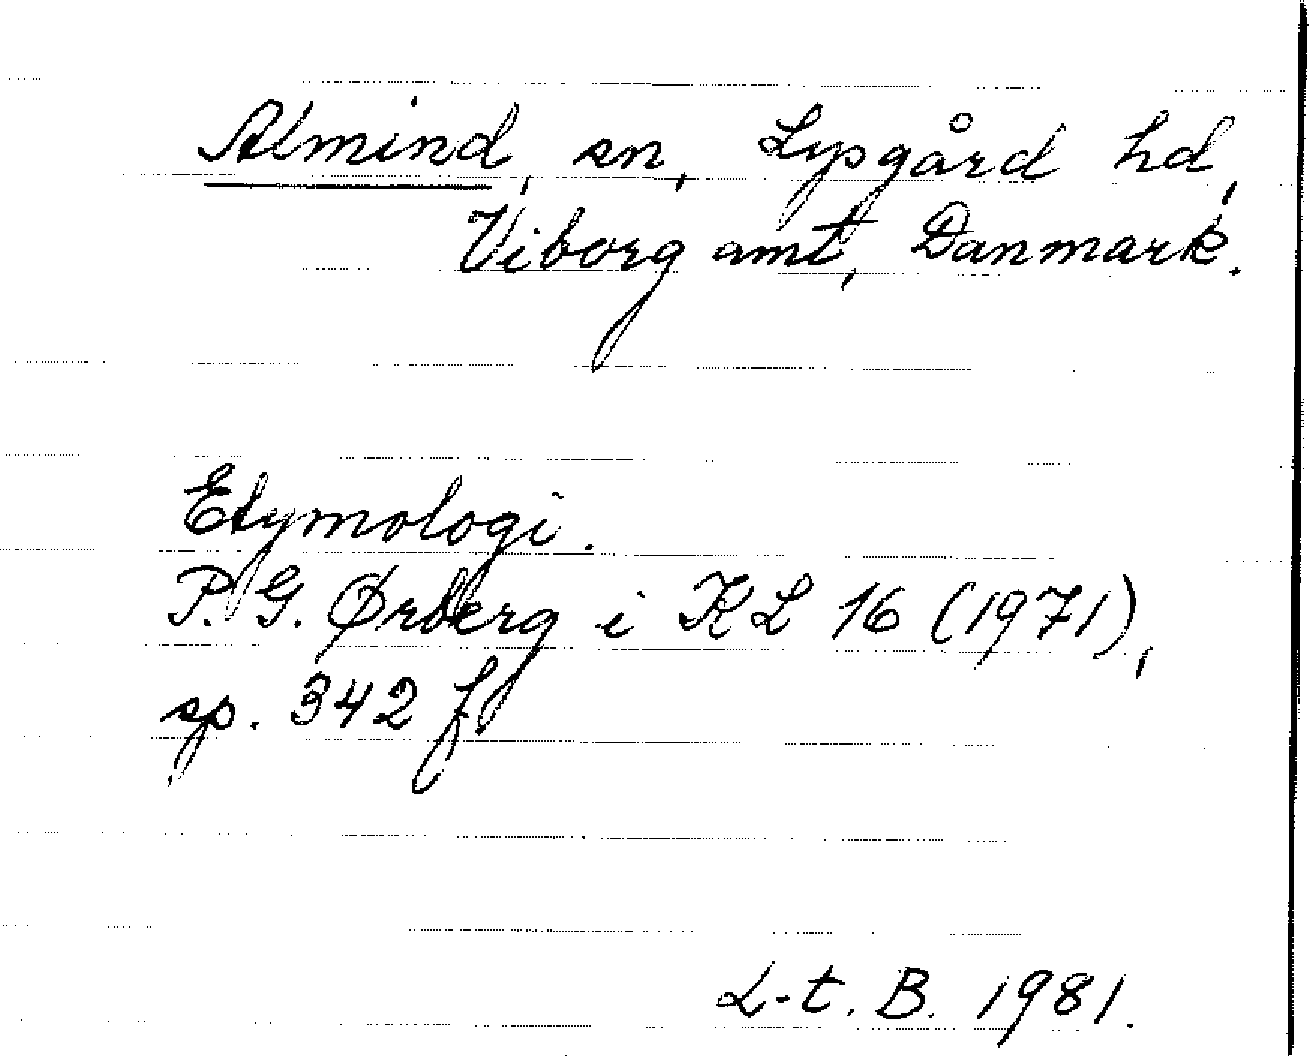 Almind, sn, Lysgård hd,
Viborg amt, Danmark.
Etymologi.
P. G. Ørberg i KL 16 (1971),
sp. 342 f.
L-t. B. 1981.